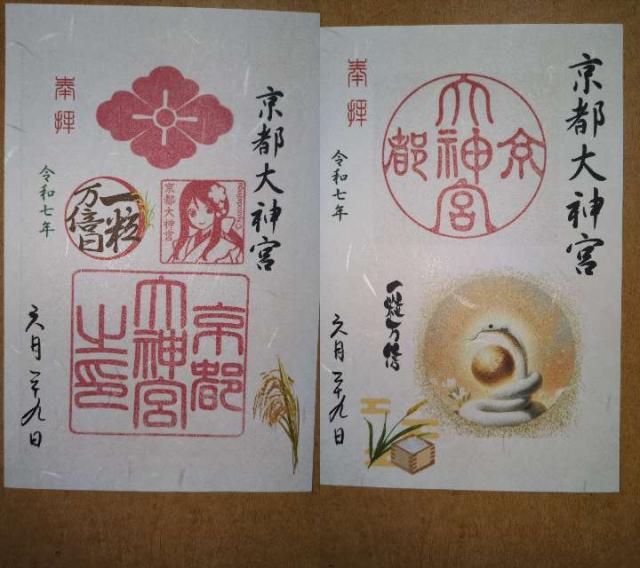 京都大神宮
奉拝
一粒
万倍日
京都大神宮
令和七年
京都
大神宮
之印
六月二十九日
京都大神宮
奉拝
京都大神宮
令和七年
一粒万倍
六月二十九日